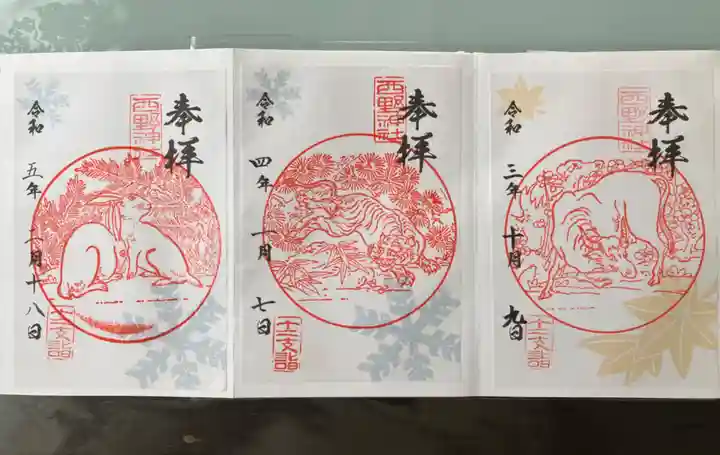 奉拝
西野神社
令和三年十月九日
十二支詣
奉拝
西野神社
令和四年一月七日
十二支詣
奉拝
西野神社
令和五年二月十八日
十二支詣